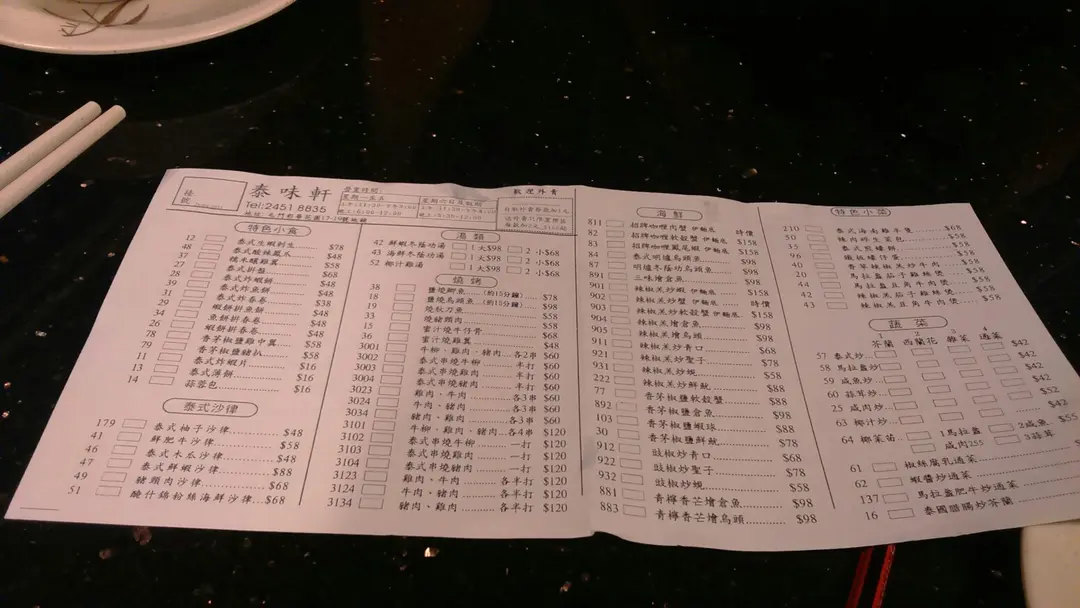 泰味軒
Tel:2451 8835
地址: 屯門彩華花園17-19號地舖
營業時間:
星期一至五
星期六日及假期
歡迎外賣
特色小食
12 泰式生蝦刺生 $78
48 泰式酸辣鳳爪 $48
37 糯米釀雞翼 $58
27 泰式拼盤 $68
28 泰式炸蝦餅 $48
39 泰式炸魚餅 $48
31 泰式炸春卷 $38
29 蝦餅拼魚餅 $48
34 魚餅拼春卷 $48
26 蝦餅拼春卷 $48
78 香茅椒鹽雞中翼 $58
79 香茅椒鹽豬扒 $58
11 泰式炸蝦片 $16
13 泰式薄餅 $16
14 蒜蓉包 $16
泰式沙律
179 泰式柚子沙律 $48
41 鮮肥牛沙律 $58
46 泰式木瓜沙律 $48
47 泰式鮮蝦沙律 $88
49 豬頸肉沙律 $68
51 膾什錦粉絲海鮮沙律 $68
湯類
42 鮮蝦冬蔭功湯 1大$98 2小$68
43 海鮮冬蔭功湯 1大$98 2小$68
52 椰汁雞湯 1大$98 2小$68
燒烤
38 鹽燒鯽魚 (約15分鐘) $78
18 鹽燒烏頭魚 (約15分鐘) $98
19 燒秋刀魚 $58
33 燒豬頸肉 $58
15 蜜汁燒牛仔骨 $58
36 蜜汁燒雞翼 $48
3001 牛柳、雞肉、豬肉 各2串 $60
3002 泰式串燒牛柳 半打 $60
3003 泰式串燒雞肉 半打 $60
3004 泰式串燒豬肉 半打 $60
3023 雞肉、牛肉 各3串 $60
3024 牛肉、豬肉 各3串 $60
3034 豬肉、雞肉 各3串 $60
3101 牛柳、雞肉、豬肉 各4串 $120
3102 泰式串燒牛柳 一打 $120
3103 泰式串燒雞肉 一打 $120
3104 泰式串燒豬肉 一打 $120
3123 雞肉、牛肉 各半打 $120
3124 牛肉、豬肉 各半打 $120
3134 豬肉、雞肉 各半打 $120
海鮮
811 招牌咖喱肉蟹 伊麵底 時價
82 招牌咖喱軟殼蟹 伊麵底 $158
83 招牌咖喱鳳尾蝦 伊麵底 $158
84 泰式明爐烏頭魚 $98
87 明爐冬蔭功烏頭魚 $98
891 三味燴倉魚 $98
901 辣椒羔炒蝦 伊麵底 $158
902 辣椒羔炒蟹 伊麵底 時價
903 辣椒羔炒軟殼蟹 伊麵底 $158
904 辣椒羔燴倉魚 $98
905 辣椒羔燴烏頭 $98
911 辣椒羔炒青口 $68
921 辣椒羔炒聖子 $78
931 辣椒羔炒蜆 $58
222 辣椒羔炒鮮魷 $78
77 香茅椒鹽軟殼蟹 $88
892 香茅椒鹽倉魚 $98
103 香茅椒鹽蝦球 $88
30 香茅椒鹽鮮魷 $78
912 豉椒炒青口 $68
922 豉椒炒聖子 $78
932 豉椒炒蜆 $58
881 青檸香芒燴倉魚 $98
883 青檸香芒燴烏頭 $98
特色小菜
210 泰式海南雞半隻 $68
50 辣肉碎生菜包 $58
35 泰式煎蠔餅 $58
96 鐵板蠔仔蛋
40 香草辣椒炒牛肉
20 馬拉盞茄子雞絲煲
44 馬拉盞豆角牛肉煲
42 辣椒羔茄子雞絲煲
43 辣椒羔豆角牛肉煲 $58
蔬菜
芥蘭 西蘭花 椰菜 通菜
57 泰式炒 $42
58 馬拉盞炒
59 咸魚炒 $42
60 蒜茸炒 $52
25 咸肉炒 $42
63 椰汁炒 $55
64 椰菜苗 1馬拉盞 2咸魚
3蒜茸
61 椒絲腐乳通菜
62 蝦醬炒通菜
137 馬拉盞肥牛炒通菜
16 泰國腊腸炒芥蘭